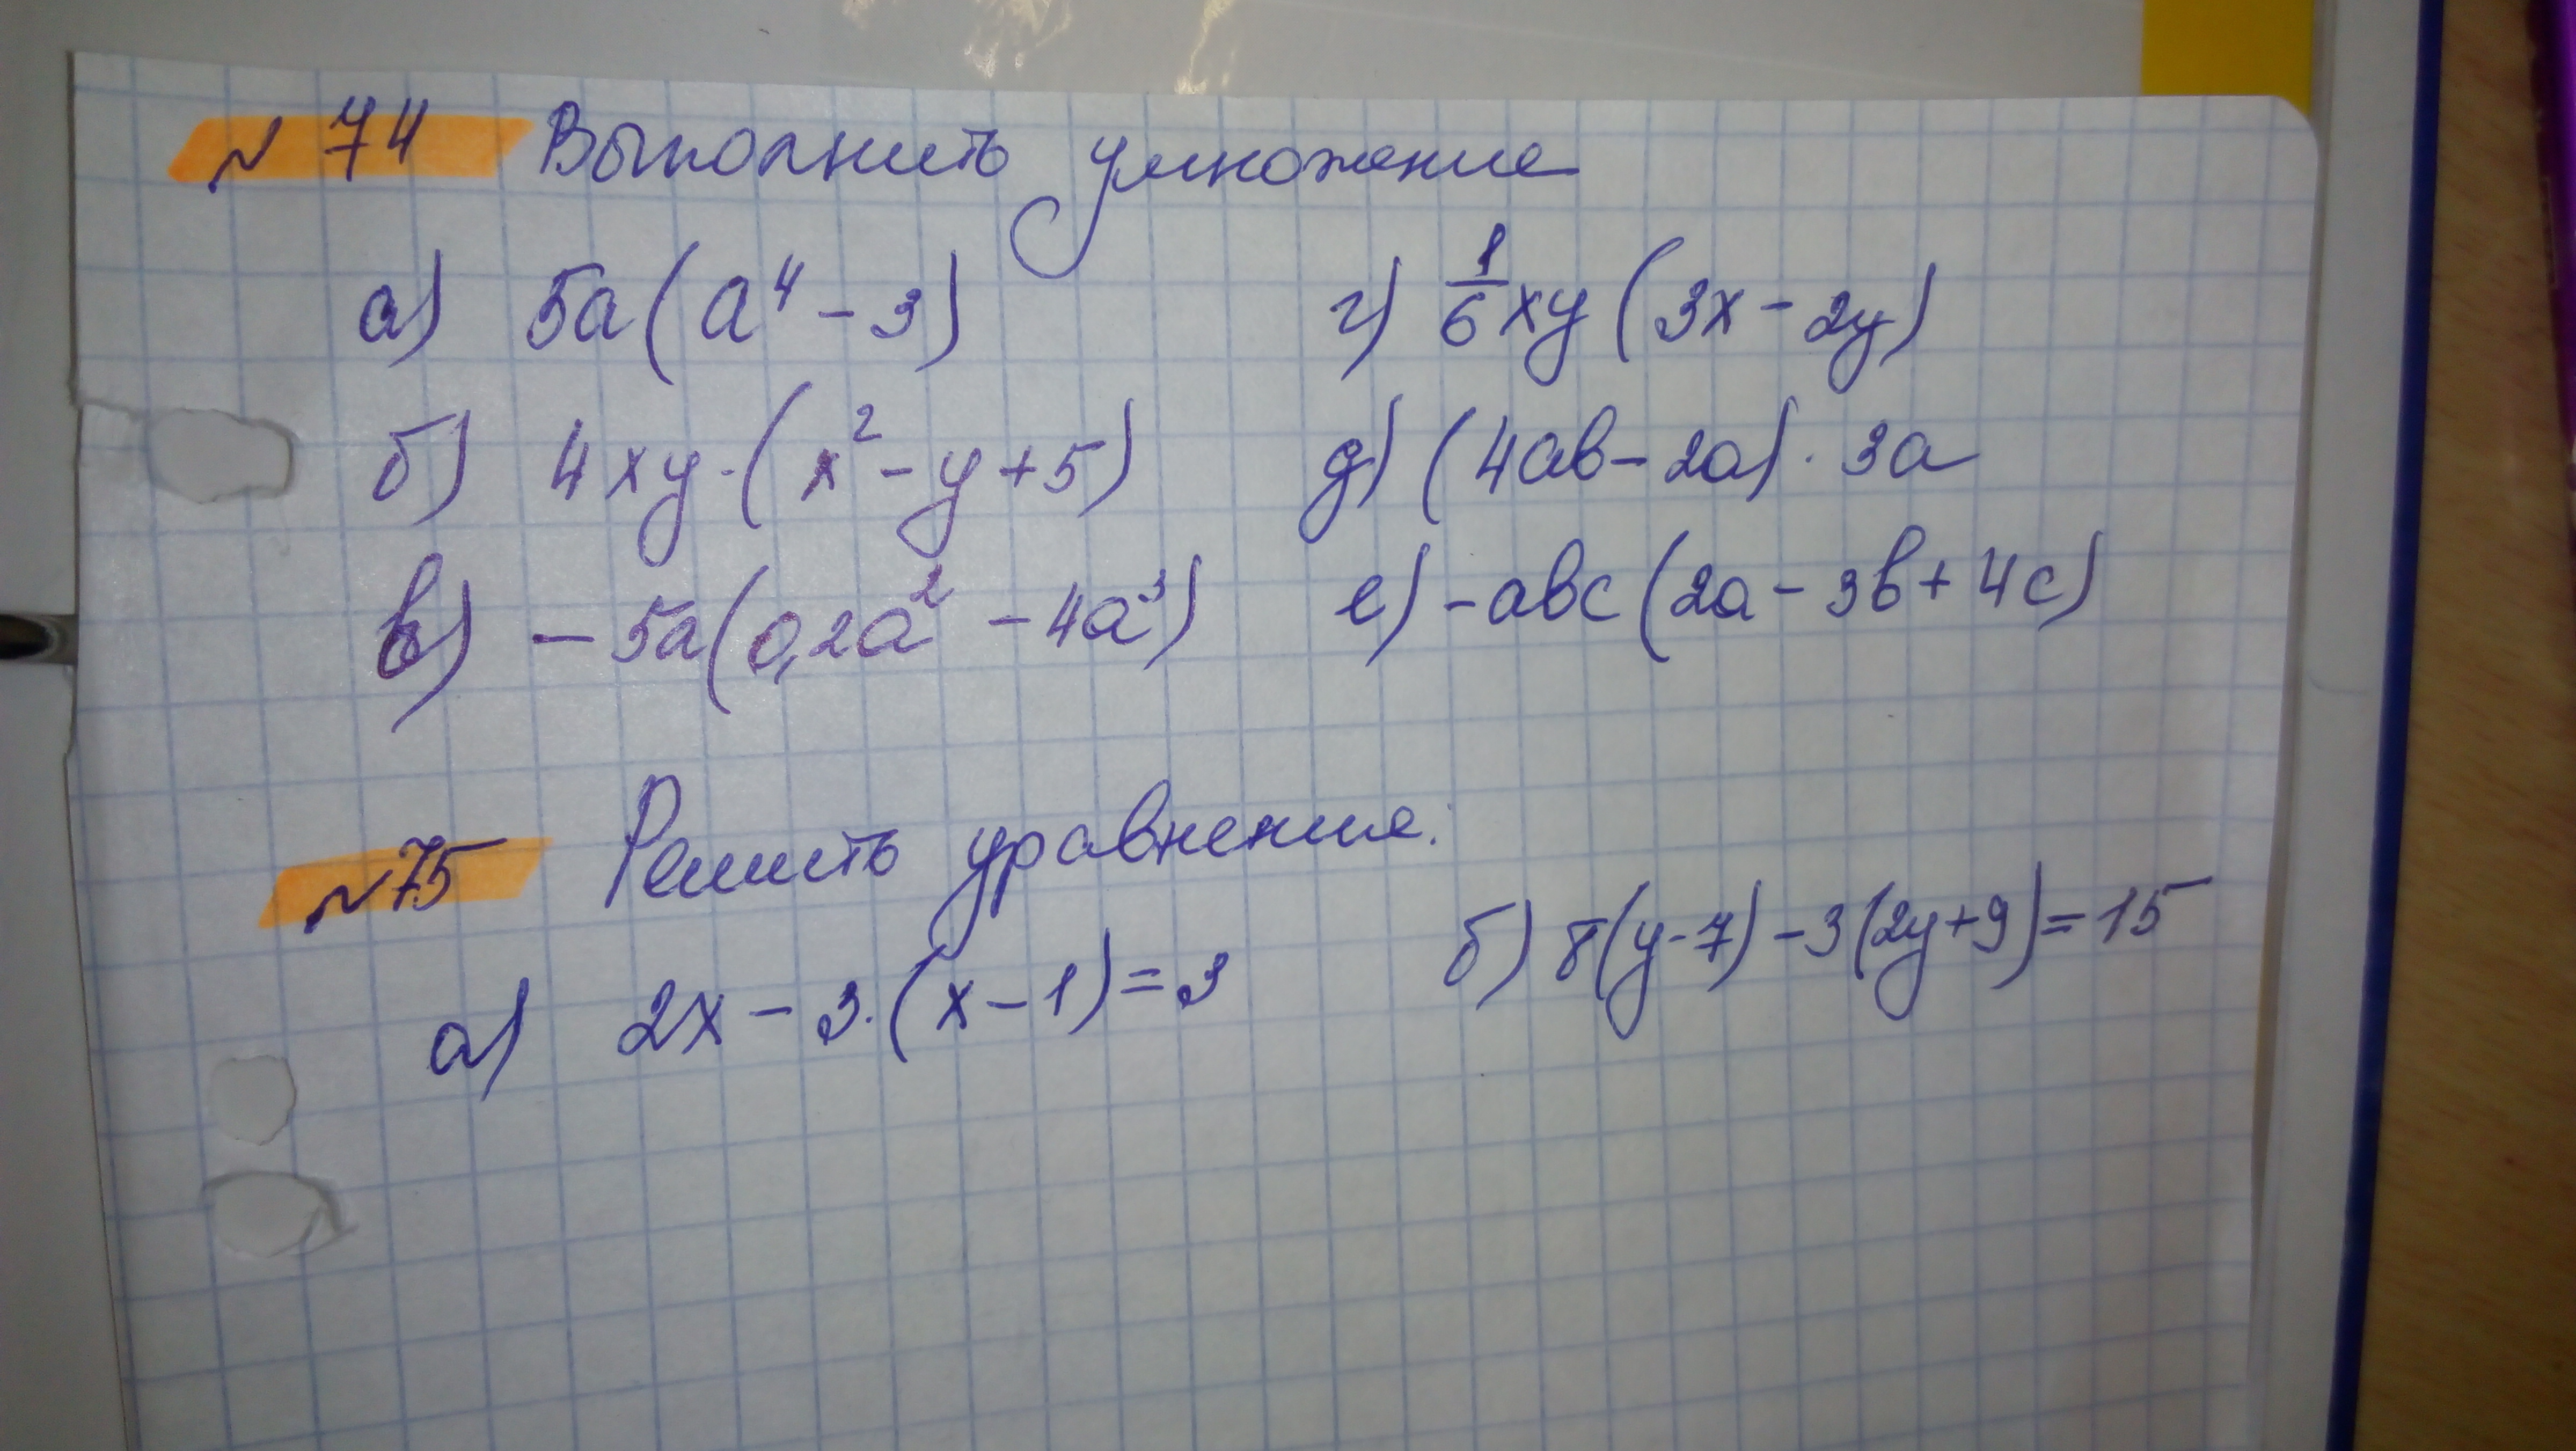 № 74 Выполнить умножение
а) 5a(a⁴ - 3) г) 1/6 xy (3x - 2y)
б) 4xy·(x² - y + 5) д) (4ab - 2a) · 3a
в) - 5a(0,2a² - 4a³) е) -abc (2a - 3b + 4c)
№75 Решить уравнение:
а) 2x - 3·(x - 1) = 3 б) 8(y - 7) - 3(2y + 9) = 15